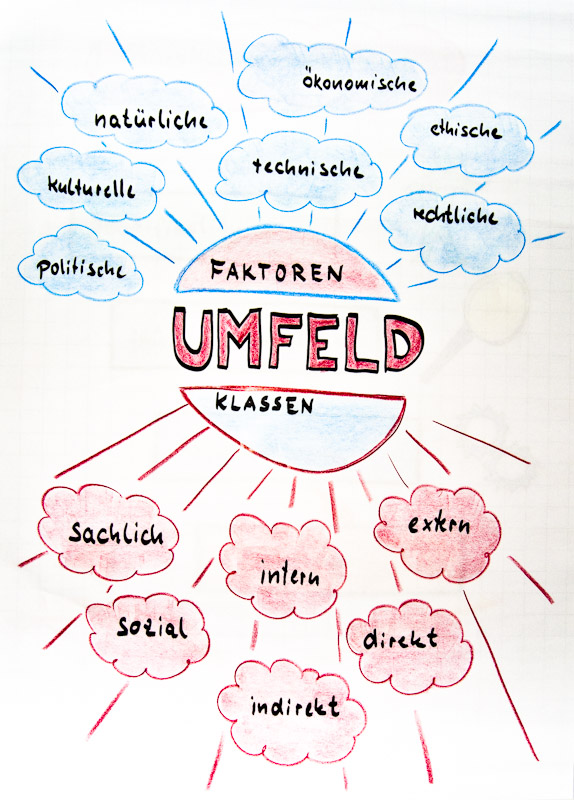 ökonomische
natürliche
ethische
technische
kulturelle
rechtliche
politische
FAKTOREN
UMFELD
KLASSEN
sachlich
extern
intern
sozial
direkt
indirekt